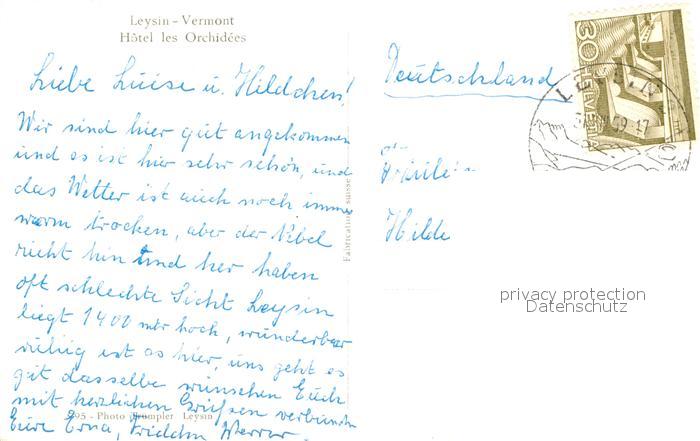 Leysin - Vermont
Hôtel les Orchidées
Liebe Luise u. Hildchen!
Wir sind hier gut angekommen
und es ist hier sehr schön, und
das Wetter ist auch noch immer
warm trocken, aber der Nebel
zieht hin und her haben
oft schlechte Sicht Leysin
liegt 1400 mtr hoch, wunderbar
ruhig ist es hier, uns geht es
gut dasselbe wünschen Euch
mit herzlichen Grüßen verbunden
Eure Erna, Werner.
95 - Photo Trümpler Leysin
Fabrication suisse
Deutschland
Fräulein
Hilde
30
HELVETIA
LEYSIN
privacy protection
Datenschutz